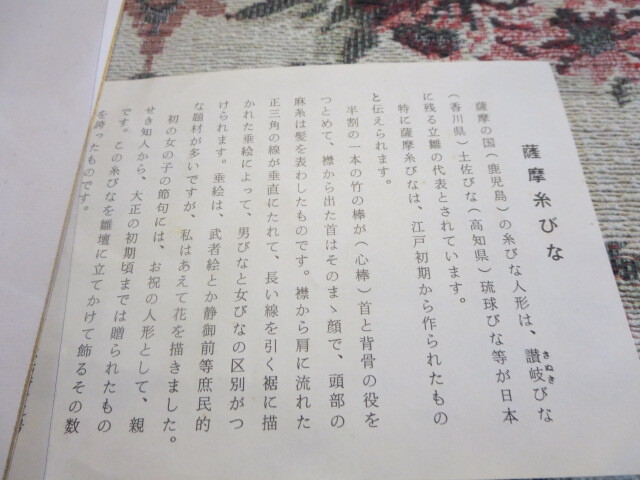 薩摩糸びな
薩摩の国(鹿児島)の糸びな人形は、讃岐びな
さぬき
(香川県)土佐びな(高知県)琉球びな等が日本
に残る立雛の代表とされています。
特に薩摩糸びなは、江戸初期から作られたもの
と伝えられます。
半割の一本の竹の棒が(心棒)首と背骨の役を
つとめて、襟から出た首はそのまゝ顔で、頭部の
麻糸は髪を表わしたものです。襟から肩に流れた
正三角の線が垂直にたれて、長い線を引く裾に描
かれた垂絵によって、男びなと女びなの区別がつ
けられます。垂絵は、武者絵とか静御前等庶民的
な題材が多いですが、私はあえて花を描きました。
初の女の子の節句には、お祝の人形として、親
せき知人から、大正の初期頃までは贈られたもの
です。この糸びなを雛壇に立てかけて飾るその数
を誇ったものです。